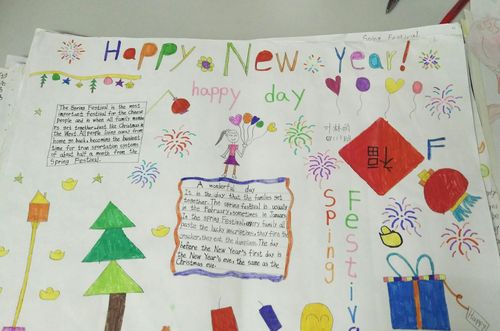 Spring Festival
Happy New year!
happy day
The Spring Festival is the most
important festival for the Chinese
people and is when all family members
get together, just like Christmas in
the West. All people living away from
home go back, becoming the busiest
time for transportation systems
of about half a month from the
Spring Festival.
A wonderful day
It is the day that the families get
together. The spring festival is usually
in the February, sometimes in January
In the spring Festival, every family all
paste the lucky inscription, they fire the
cracker, they eat the dumpling. The day
before the New Year's first day is
the New Year's eve, the same as the
Christmas eve.
福
F
Spring
Festiv
Happy